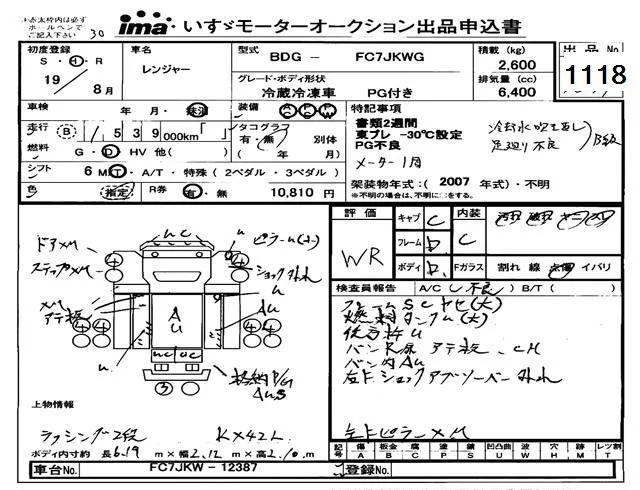 ※赤太枠内は必ず
ボールペンで
ご記入下さい
30
ima いすゞモーターオークション出品申込書
初度登録 車名 型式 BDG － FC7JKWG 積載 (kg) 2,600 出品No
S ・ H ・ R レンジャー グレード・ボディ形状 排気量 (cc) 1118
19 / 8月 冷蔵冷凍車 PG付き 6,400
車検 年 ・ 月 ・ 抹消 装備 A/C P/S P/W 特記事項
走行 B 539 000km 「 」 タコグラフ 書類2週間
有 ・ 無 別体 東プレ -30℃設定
燃料 G ・ D ・ HV 他( ) ( 年 / 月) PG不良
メーター1月
冷却水吹き返し
足廻り不良 B級
シフト 6 M/T ・ A/T ・ 特殊 ( 2ペダル ・ 3ペダル )
色 指定 R券 有 ・ 無 10,810 円
架装物年式：( 2007 年式) ・ 不明
※不明の場合は、不明に○をする。
評価 WR キャブ C 内装 C
フレーム D
ボディ D Fガラス 割れ 線 点傷 イバリ
検査員報告 A/C ( 不良 ) B/T ( )
フレームSCヤセ(大)
燃料タンクU(大)
後バンパU
バンR扉 アテ板、CH
バン内AU
左ドショックアブソーバー外れ
左ドピラーXM
ドアXM
ステップXM
UC
U
ピラーU(小)
ショック外れ
XM
アテ板
U
A
U
AU
U
UC UC
格納P/G
AUS
4 4 4 4 4 4
3
上物情報
ラッシング2段 KX42L
ボディ内寸約 長6.19 m × 幅2.12 m × 高2.10 m
記号 傷 A 板金 B 腐 C 塗 P 錆 S 凹凸曲 U 波 W 穴 H 跡 M レツ割 T
車台No. FC7JKW－12387 登録No.